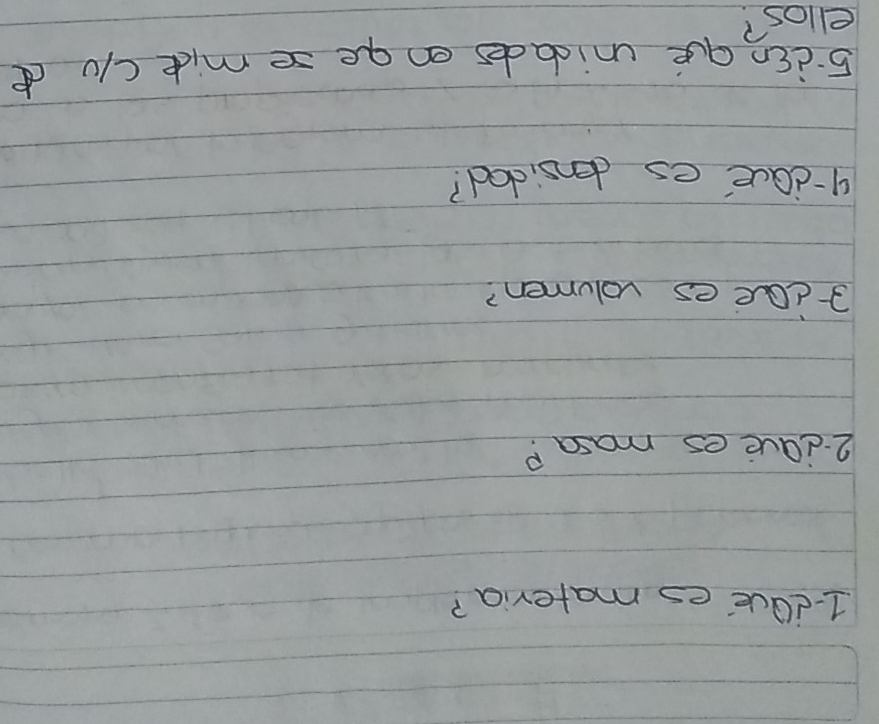 1-¿Qué es materia?
2-¿Qué es masa?
3-¿Qué es volumen?
4-¿Qué es densidad?
5-¿En qué unidades en que se mide c/u de
ellos?